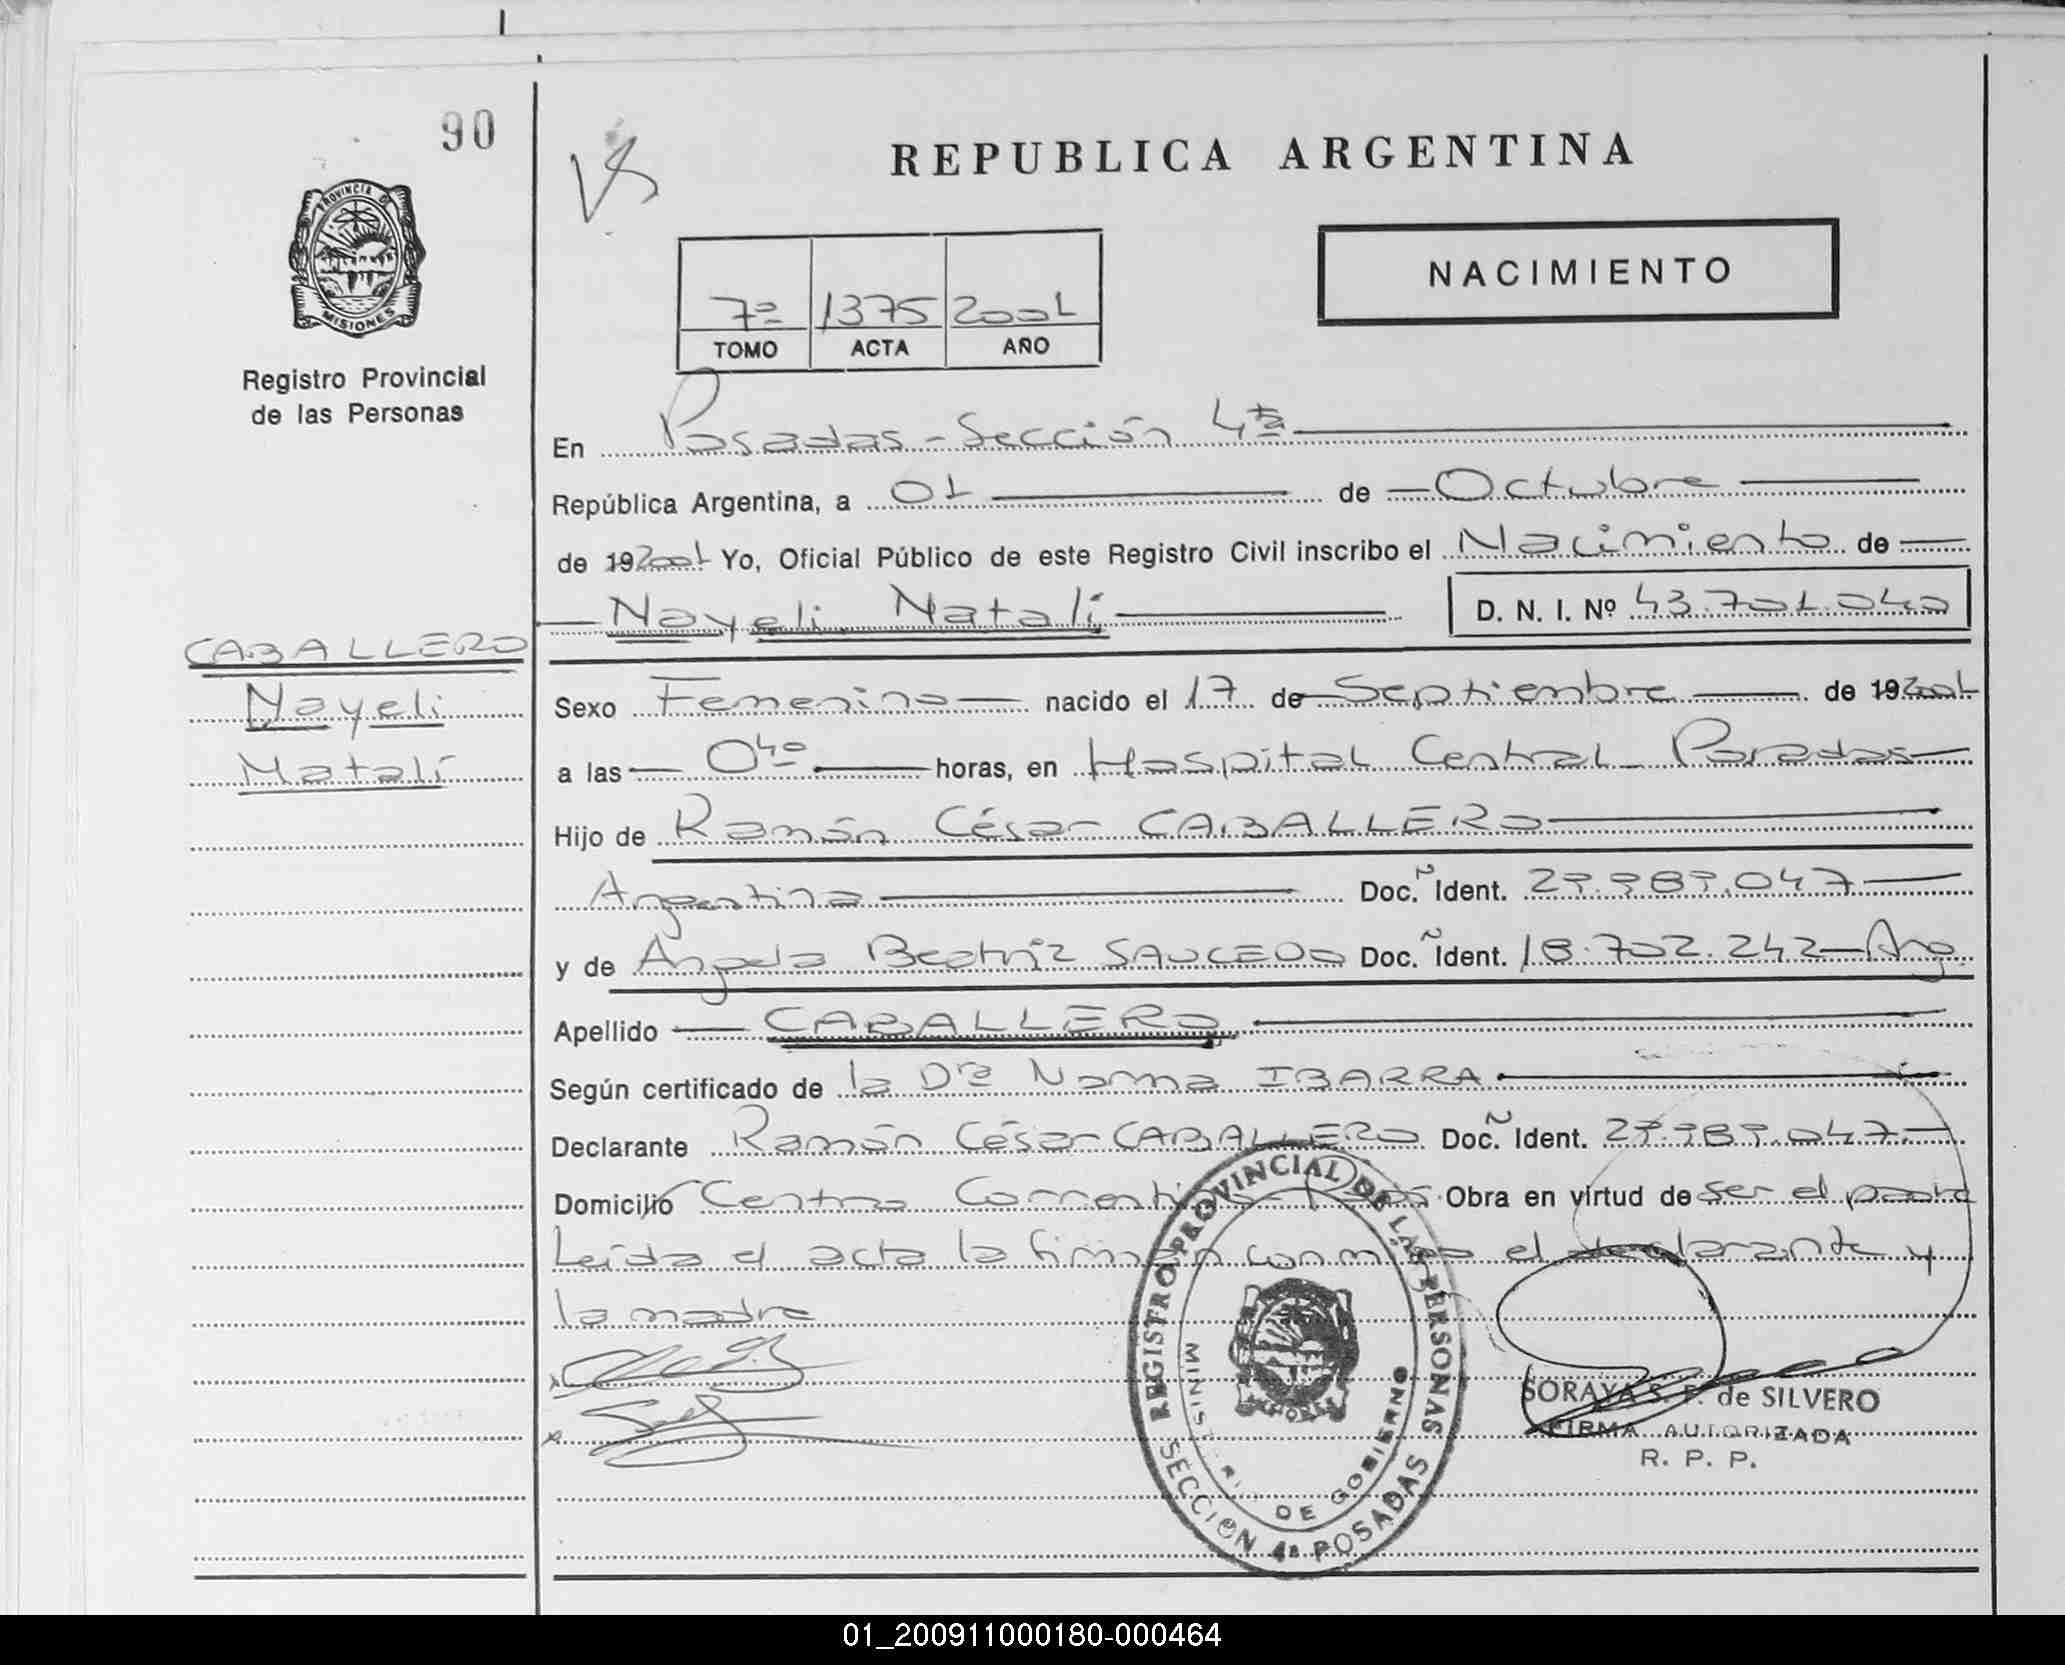 90
PROVINCIA DE
MISIONES
Registro Provincial
de las Personas
REPUBLICA ARGENTINA
NACIMIENTO
7º 1375 2001
TOMO ACTA AÑO
En Posadas - Sección 4ta
República Argentina, a 01 de Octubre
de 192001 Yo, Oficial Público de este Registro Civil inscribo el Nacimiento de
Nayeli Natalí D. N. I. Nº 43.701.040
CABALLERO
Nayeli
Natalí
Sexo Femenino nacido el 17 de Septiembre de 192001
a las 04º horas, en Hospital Central - Posadas
Hijo de Ramón César CABALLERO
Argentina Doc. Ident. 29.989.047
y de Angela Beatriz SAUCEDO Doc. Ident. 18.702.242 - Arg.
Apellido CABALLERO
Según certificado de la Dra Norma IBARRA
Declarante Ramón César CABALLERO Doc. Ident. 29.989.047.
Domicilio Centro Obra en virtud de ser el padre
Leída el acta la firman conmigo el declarante y
la madre
REGISTRO PROVINCIAL DE LAS PERSONAS
MINISTERIO DE GOBIERNO
SECCION 4a POSADAS
SORAYA S. F. de SILVERO
FIRMA AUTORIZADA
R. P. P.
01_200911000180-000464